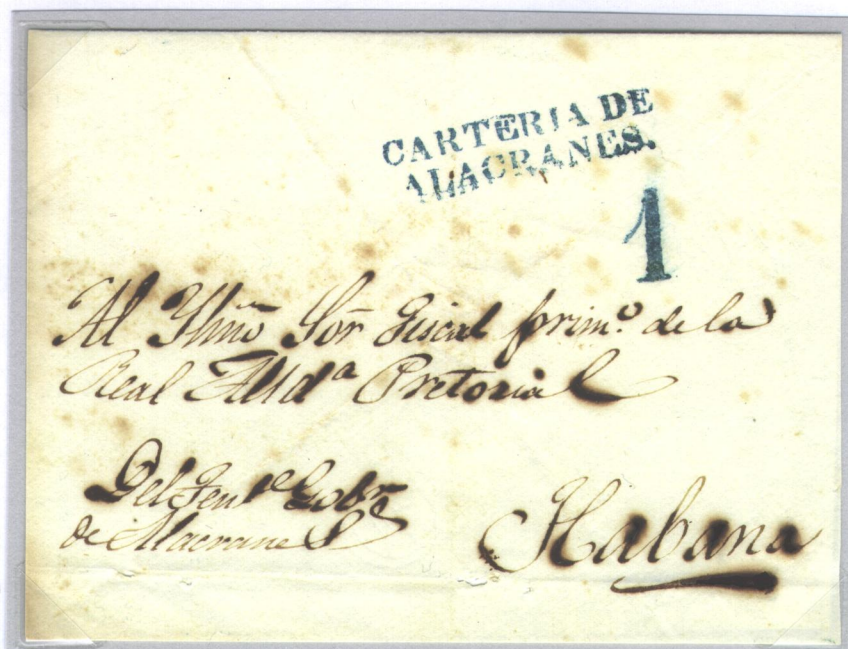 CARTERIA DE
ALACRANES.
1
Al Yllmo Sor Fiscal primo. de la
Real Audª Pretorial
Del Tente Gobor
de Alacranes
Habana